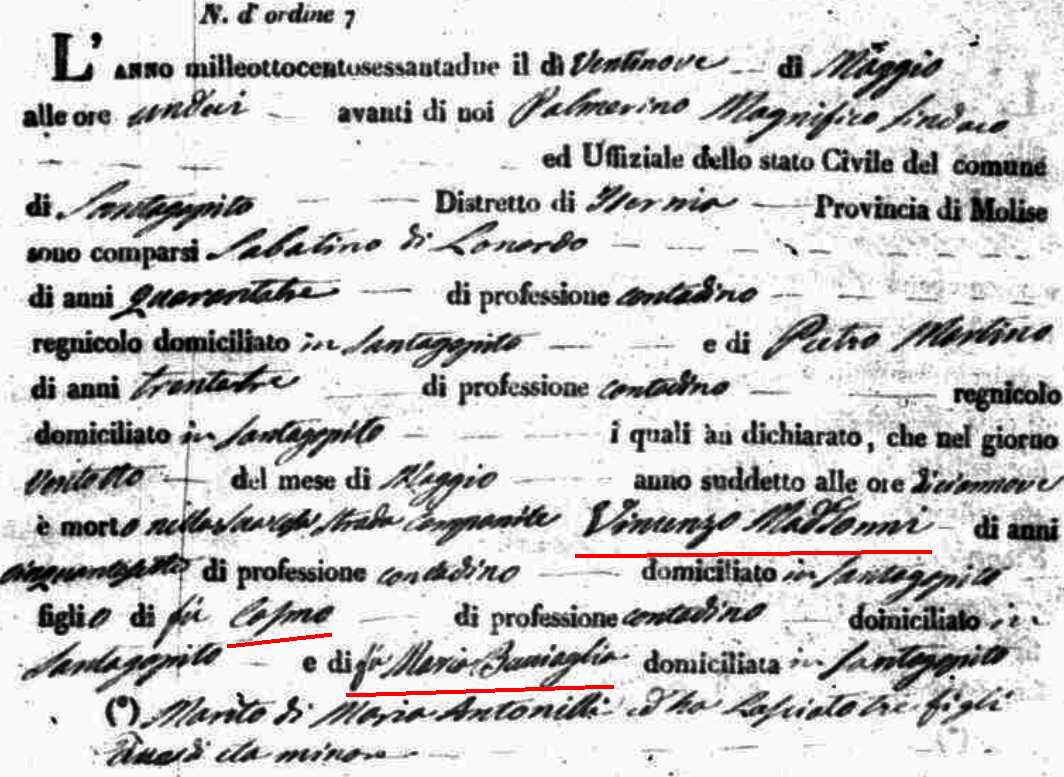 N. d' ordine 7
L' ANNO milleottocentosessantadue il dì Ventinove di Maggio
alle ore undici avanti di noi Palmerino Magnifico Sindaco
ed Uffiziale dello stato Civile del comune
di Santagapito Distretto di Isernia Provincia di Molise
sono comparsi Sabatino di Lonardo
di anni quarantatre di professione contadino
regnicolo domiciliato in Santagapito e di Pietro Martino
di anni trentatre di professione contadino regnicolo
domiciliato in Santagapito i quali àn dichiarato, che nel giorno
Ventotto del mese di Maggio anno suddetto alle ore diciannove
è morto nella sua casa strada Vincenzo Maddonni di anni
di professione contadino domiciliato in Santagapito
figlio di fu Cosmo di professione contadino domiciliato in
Santagapito e di fu Maria domiciliata in Santagapito
(*) Marito di Maria Antonilli ed ha lasciato tre figli
due di età minore